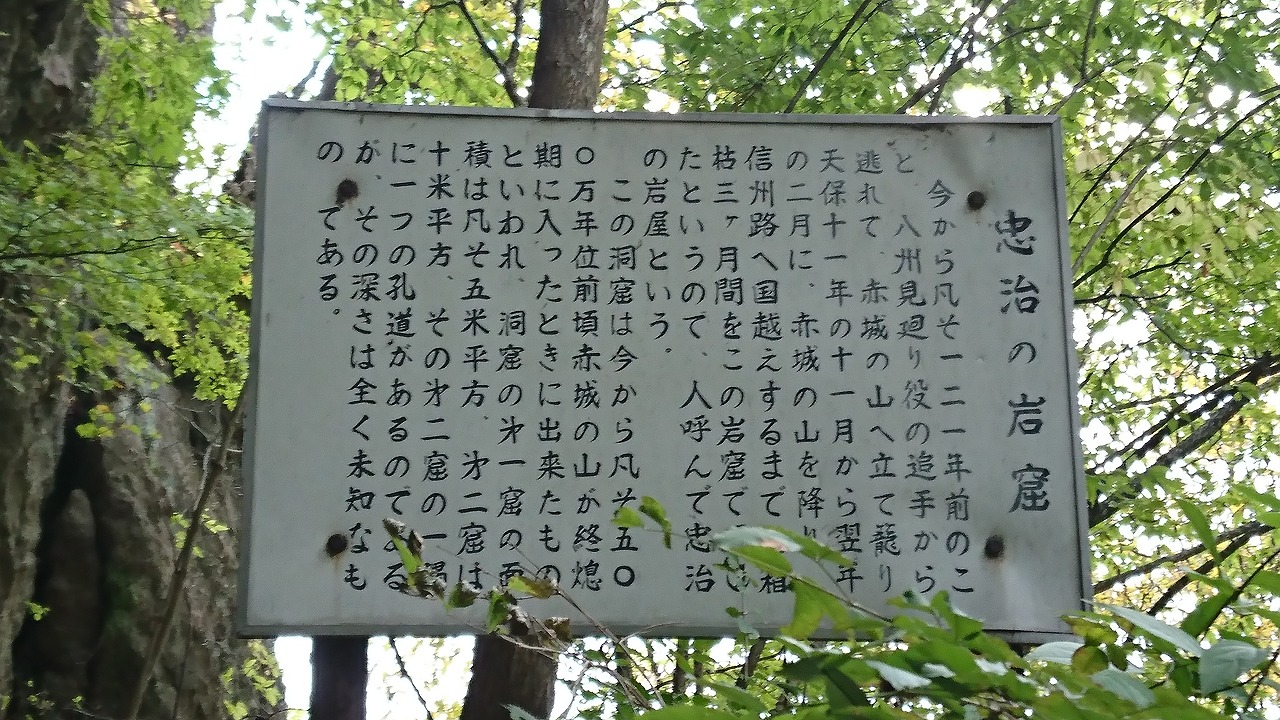 忠治の岩窟
今から凡そ一二一年前のこ
と、八州見廻り役の追手から
逃れて、赤城の山へ立て籠り
天保十一年の十一月から翌年
の二月に、赤城の山を降り
信州路へ国越えするまで
枯三ヶ月間をこの岩窟で
たというので、人呼んで忠治
の岩屋という。
この洞窟は今から凡そ五〇
〇万年位前頃赤城の山が終熄
期に入ったときに出来たもの
といわれ、洞窟の㐧一窟の面
積は凡そ五米平方、㐧二窟は
十米平方、その㐧二窟の一隅
に一つの孔道があるのである
が、その深さは全く未知なも
のである。